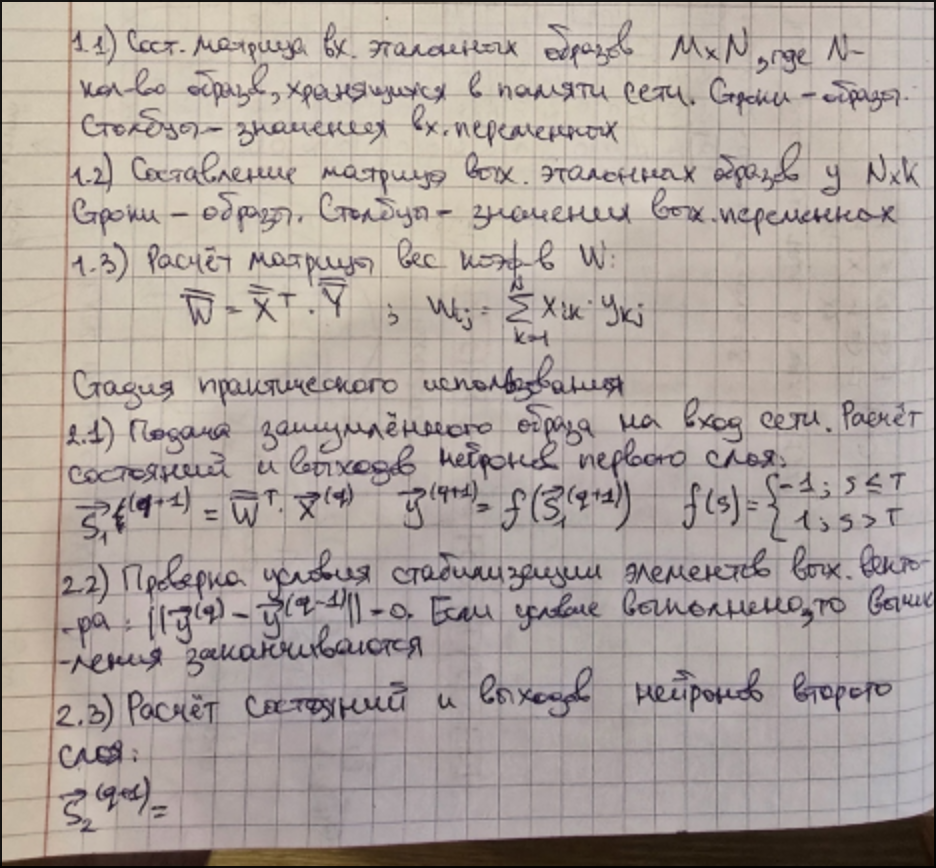 1.1) Сост. матрица вх. эталонных образов MxN, где N-
кол-во образв, хранящихся в памяти сети. Строки - образы.
Столбцы - значения вх. переменных
1.2) Составление матрицы вых. эталонных образов y NxK
Строки - образы. Столбцы - значения вых. переменнох
1.3) Расчёт матрицы вес коэф-в W:
W̿ = X̿ᵀ · Y̿ ; Wij = ∑ᴺₖ₌₁ xik · ykj
Стадия практического использования
2.1) Подача зашумлённого образа на вход сети. Расчёт
состояний и выходов нейронов первого слоя:
S⃗₁⁽q⁺¹⁾ = W̿ᵀ · x⃗⁽q⁾ y⃗⁽q⁺¹⁾ = f(S⃗₁⁽q⁺¹⁾) f(s) = {-1; s ≤ T
1; s > T
2.2) Проверка условия стабилизации элементов вых. векто-
-ра: ||y⃗⁽q⁾ - y⃗⁽q⁻¹⁾|| = 0. Если условие выполнено, то вычис
-ления заканчиваются
2.3) Расчёт состояний и выходов нейронов второго
слоя:
S⃗₂⁽q⁺¹⁾ =